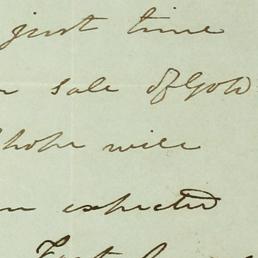 just time
sale of Gold
hope will
expected